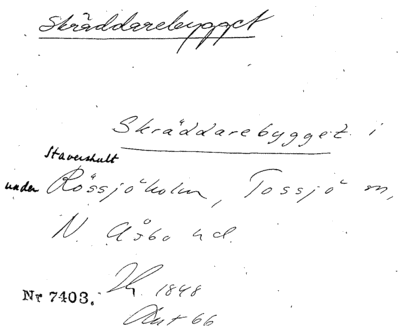 Skräddarebygget
Skräddarebygget i
Stavershult
under Rössjöholm, Tossjö sn,
N. Åsbo hd.
Jb. 1848
Nr 7403.
Akt 66